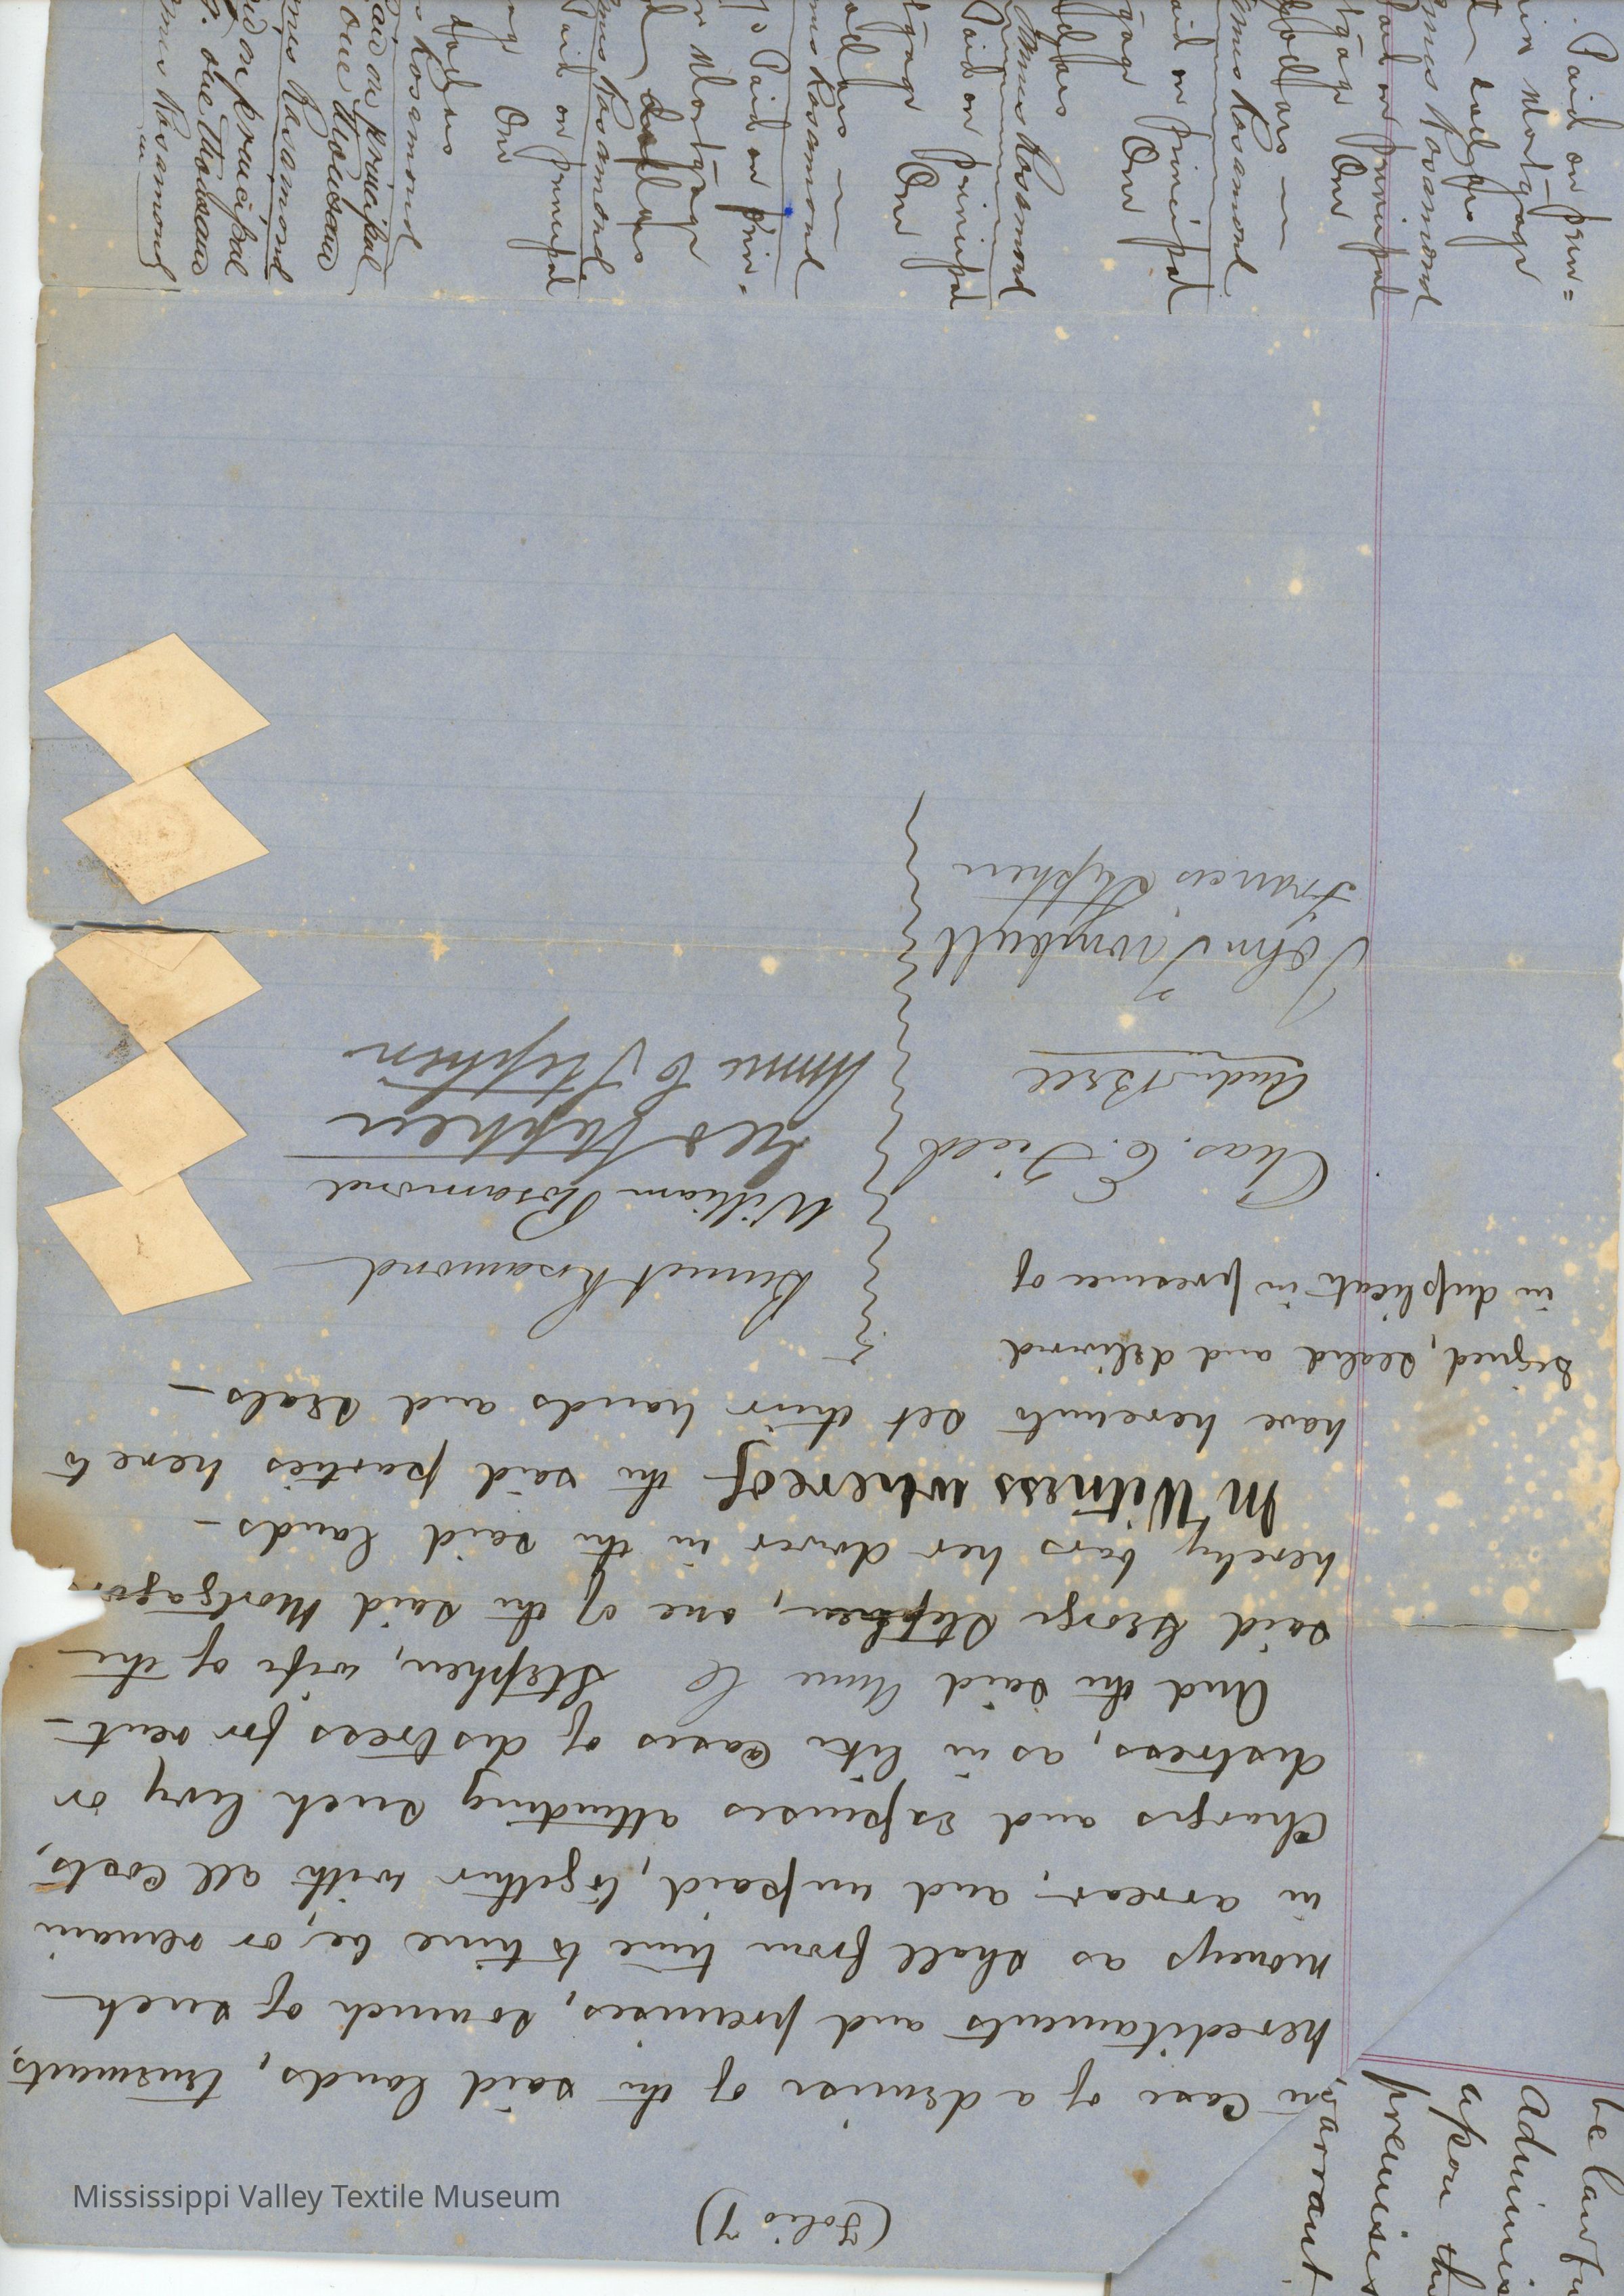 (Folio 7)
in case of a demise of the said lands, tenements,
hereditaments and premises, so much of such
moneys as shall from time to time be, or remain
in arrear, and unpaid, together with all costs,
Charges and expenses attending such levy or
distress, as in like cases of distress for rent –
And the said Anne C Stephen, wife of the
said George Stephen, one of the said Mortgagors
hereby bars her dower in the said lands –
In Witness whereof the said parties hereto
have hereunto set their hands and seals –
Signed, sealed and delivered
in duplicate in presence of
Chas. E. Field
John Turnbull
Francis Stephen
Bennet Rosamond
William Rosamond
Geo Stephen
Annie C Stephen
be lawfu
Adminis
upon the
premises
warrant
Paid on prin=
Mortgage
Rosamond
Paid on principal
tgage One
Rosamond
aid on principal
gage One
Rosamond
Paid on principal
tgage One
Rosamond
Paid on prin=
Mortgage
Rosamond
Paid on principal
One
Rosamond
aid on principal
one thousand
Rosamond
on principal
one thousand
Rosamond
Mississippi Valley Textile Museum